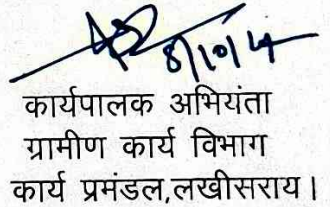 8/10/14
कार्यपालक अभियंता
ग्रामीण कार्य विभाग
कार्य प्रमंडल,लखीसराय।